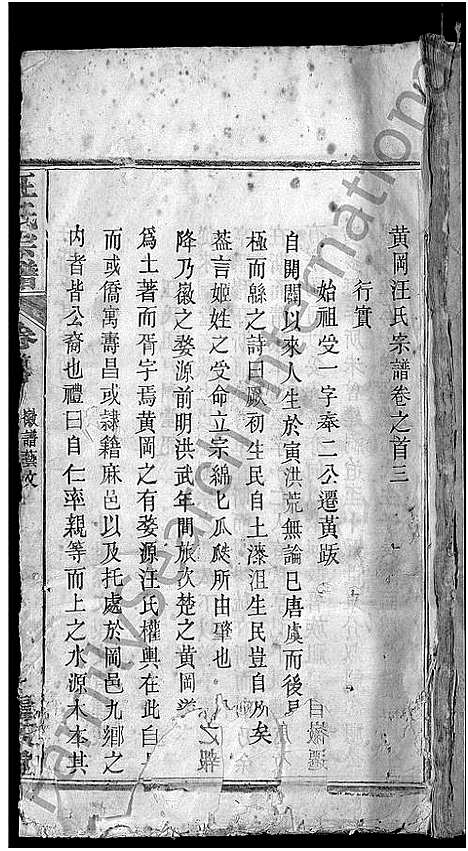 黃岡汪氏宗譜卷之首三
行實
始祖受一字奉二公遷黃䟦
自開闢以來人生於寅洪荒無論已唐虞而後
極而緜之詩曰厥初生民自土漆沮生民豈自所矣
葢言姬姓之受命立宗綿匕瓜瓞所由肇也
降乃徽之婺源前明洪武年間旅次楚之黃岡
為土著而胥宇焉黃岡之有婺源汪氏權輿在此自
而或僑寓壽昌或隷籍麻邑以及托處於岡邑九鄉之
內者皆公裔也禮曰自仁率親等而上之水源木本其
之報
自徽遷
汪氏宗譜
徽譜藝文
familysearch international